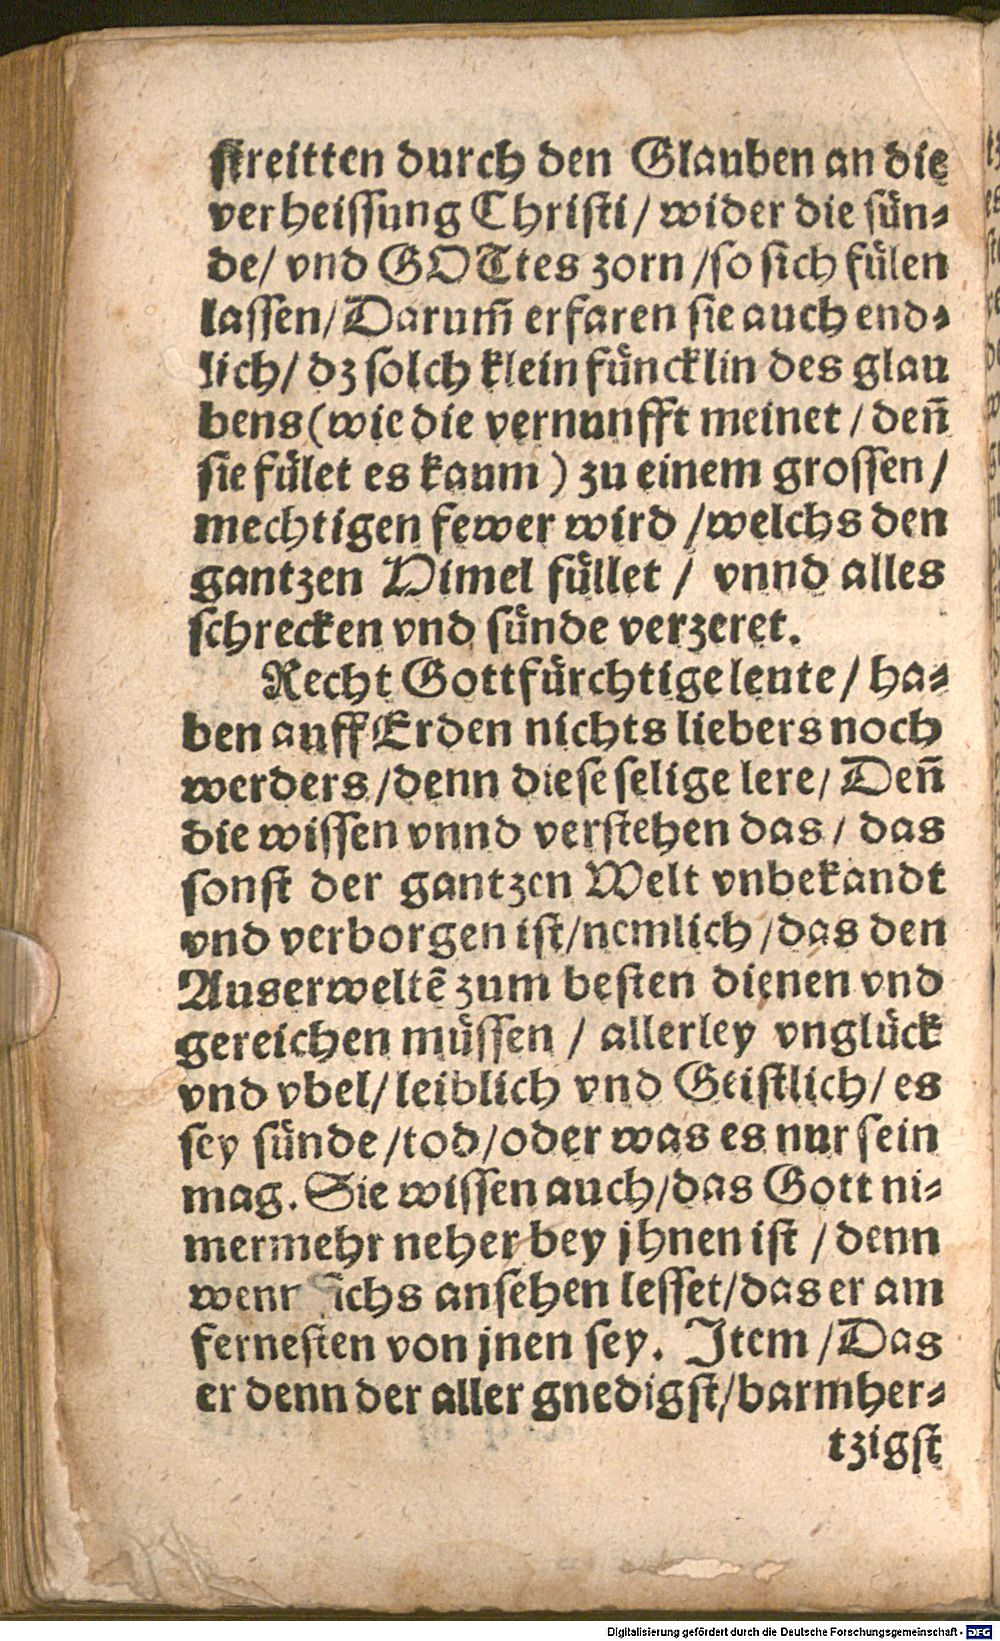 ſtreitten durch den Glauben an die
verheiſſung Chriſti / wider die ſuͤn⸗
de / vnd GOTtes zorn / ſo ſich fuͤlen
laſſen / Darum̃ erfaren ſie auch end⸗
lich / dz ſolch klein fuͤncklin des glau
bens (wie die vernunfft meinet / deñ
ſie fuͤlet es kaum) zu einem groſſen /
mechtigen fewer wird / welchs den
gantzen Himel fuͤllet / vnnd alles
ſchrecken vnd ſuͤnde verzeret.
Recht Gottfuͤrchtige leute / ha⸗
ben auff Erden nichts liebers noch
werders / denn dieſe ſelige lere / Deñ
die wiſſen vnnd verſtehen das / das
ſonſt der gantzen Welt vnbekandt
vnd verborgen iſt / nemlich / das den
Auserweltẽ zum beſten dienen vnd
gereichen muͤſſen / allerley vngluͤck
vnd vbel / leiblich vnd Geiſtlich / es
ſey ſuͤnde / tod / oder was es nur ſein
mag. Sie wiſſen auch / das Gott ni⸗
mermehr neher bey jhnen iſt / denn
wenn ſichs anſehen leſſet / das er am
ferneſten von jnen ſey. Item / Das
er denn der aller gnedigſt / barmher⸗
tzigſt
Digitalisierung gefördert durch die Deutsche Forschungsgemeinschaft - DFG